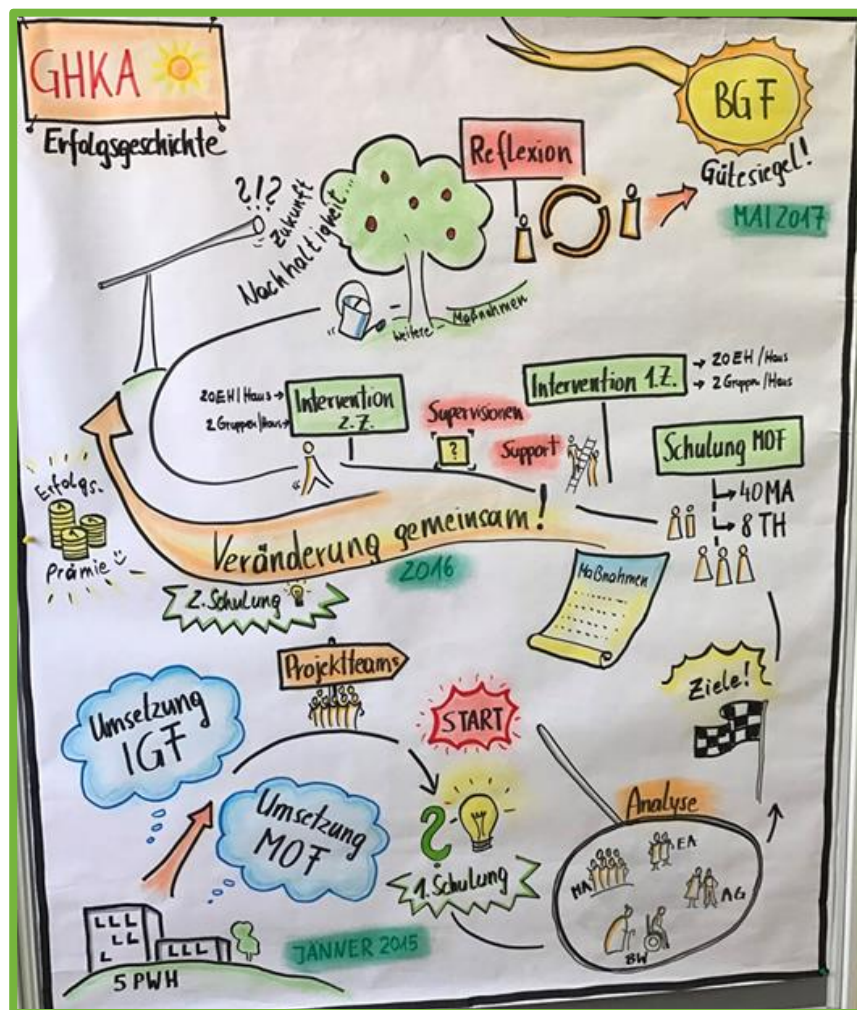 GHKA
Erfolgsgeschichte
BGF
Gütesiegel!
MAI 2017
Reflexion
?!?
Zukunft
Nachhaltigkeit...
weitere Maßnahmen
20EH/Haus
2 Gruppen/Haus
Intervention
2.Z.
Supervisionen
?
Support
Intervention 1.Z.
→ 20EH/Haus
→ 2 Gruppen/Haus
Schulung MOF
→ 40 MA
→ 8 TH
Erfolgs-
Prämie
Veränderung gemeinsam!
2016
2. Schulung
Maßnahmen
Projektteams
START
Ziele!
Umsetzung
IGF
Umsetzung
MOF
?
1. Schulung
Analyse
MA
EA
AG
BW
LLL
LL
L
LLL
5 PWH
JÄNNER 2015